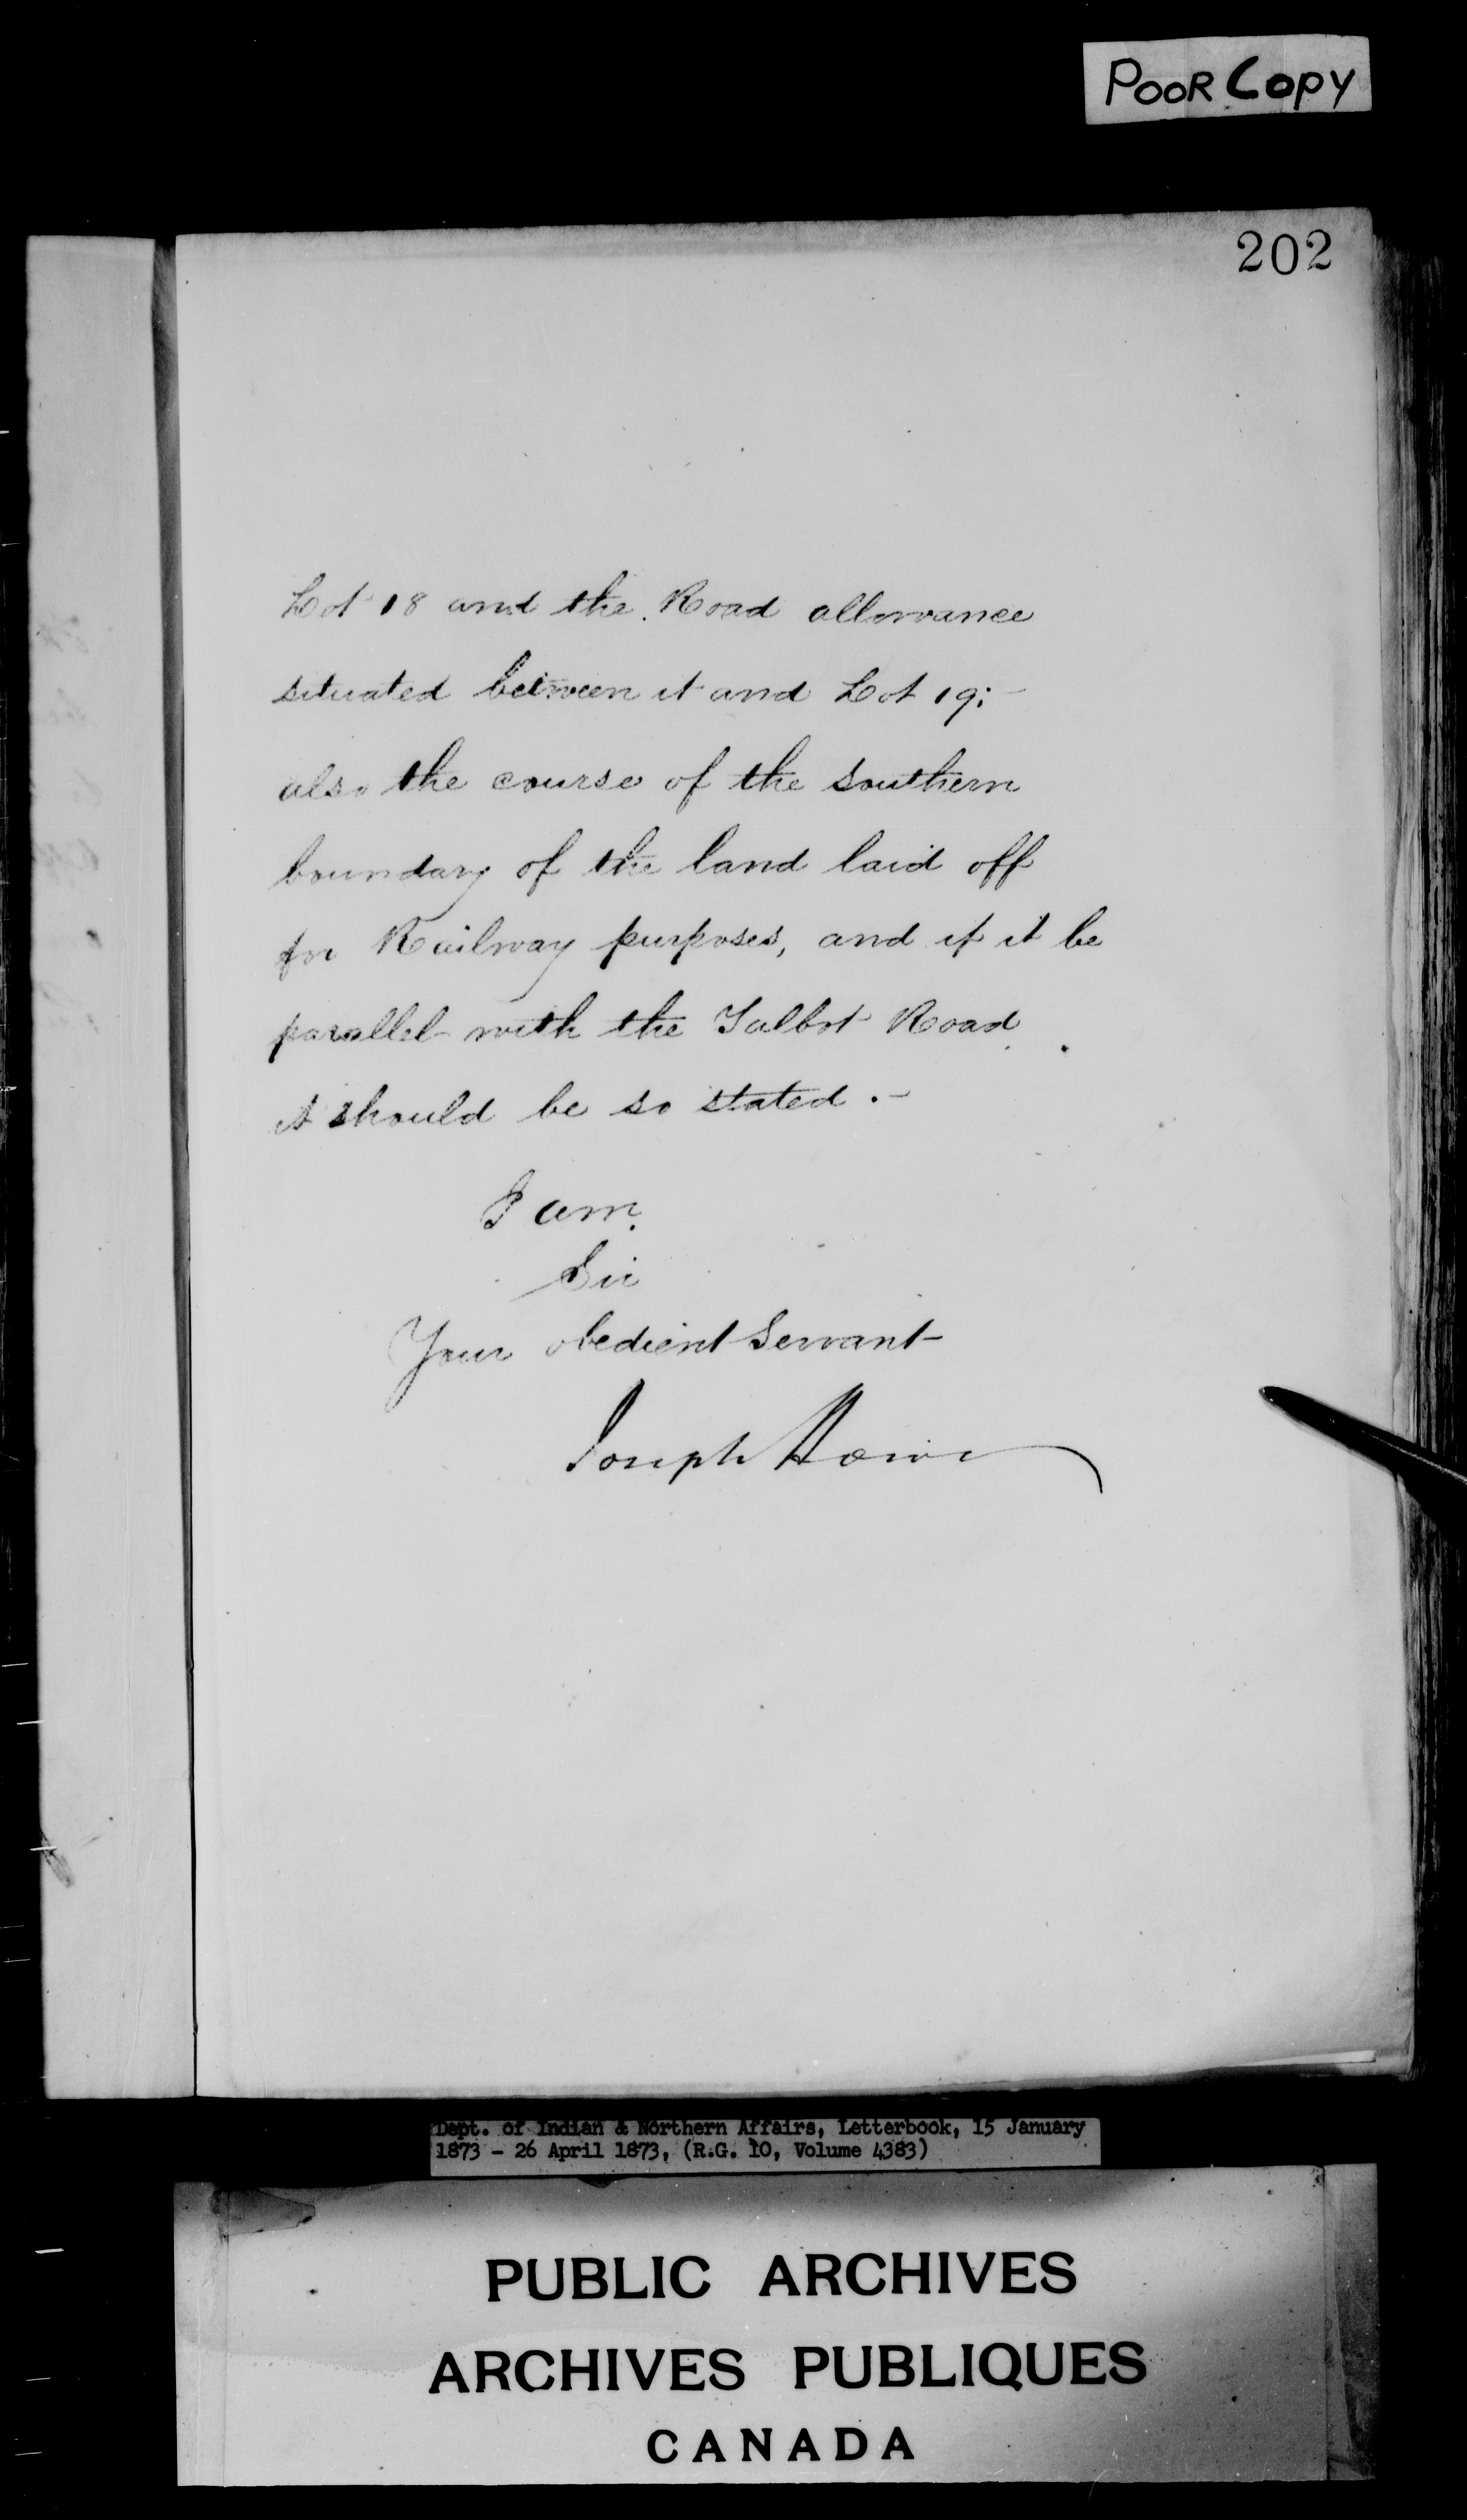 POOR COPY
202
Lot 18 and the Road allowance
situated between it and Lot 19:-
also the course of the southern
boundary of the land laid off
for Railway purposes, and if it be
parallel with the Talbot Road
it should be so stated.-
I am
Sir
Your obedient Servant
Joseph Howe
Dept. of Indian & Northern Affairs, Letterbook, 15 January
1873 - 26 April 1873, (R.G. 10, Volume 4383)
PUBLIC ARCHIVES
ARCHIVES PUBLIQUES
CANADA